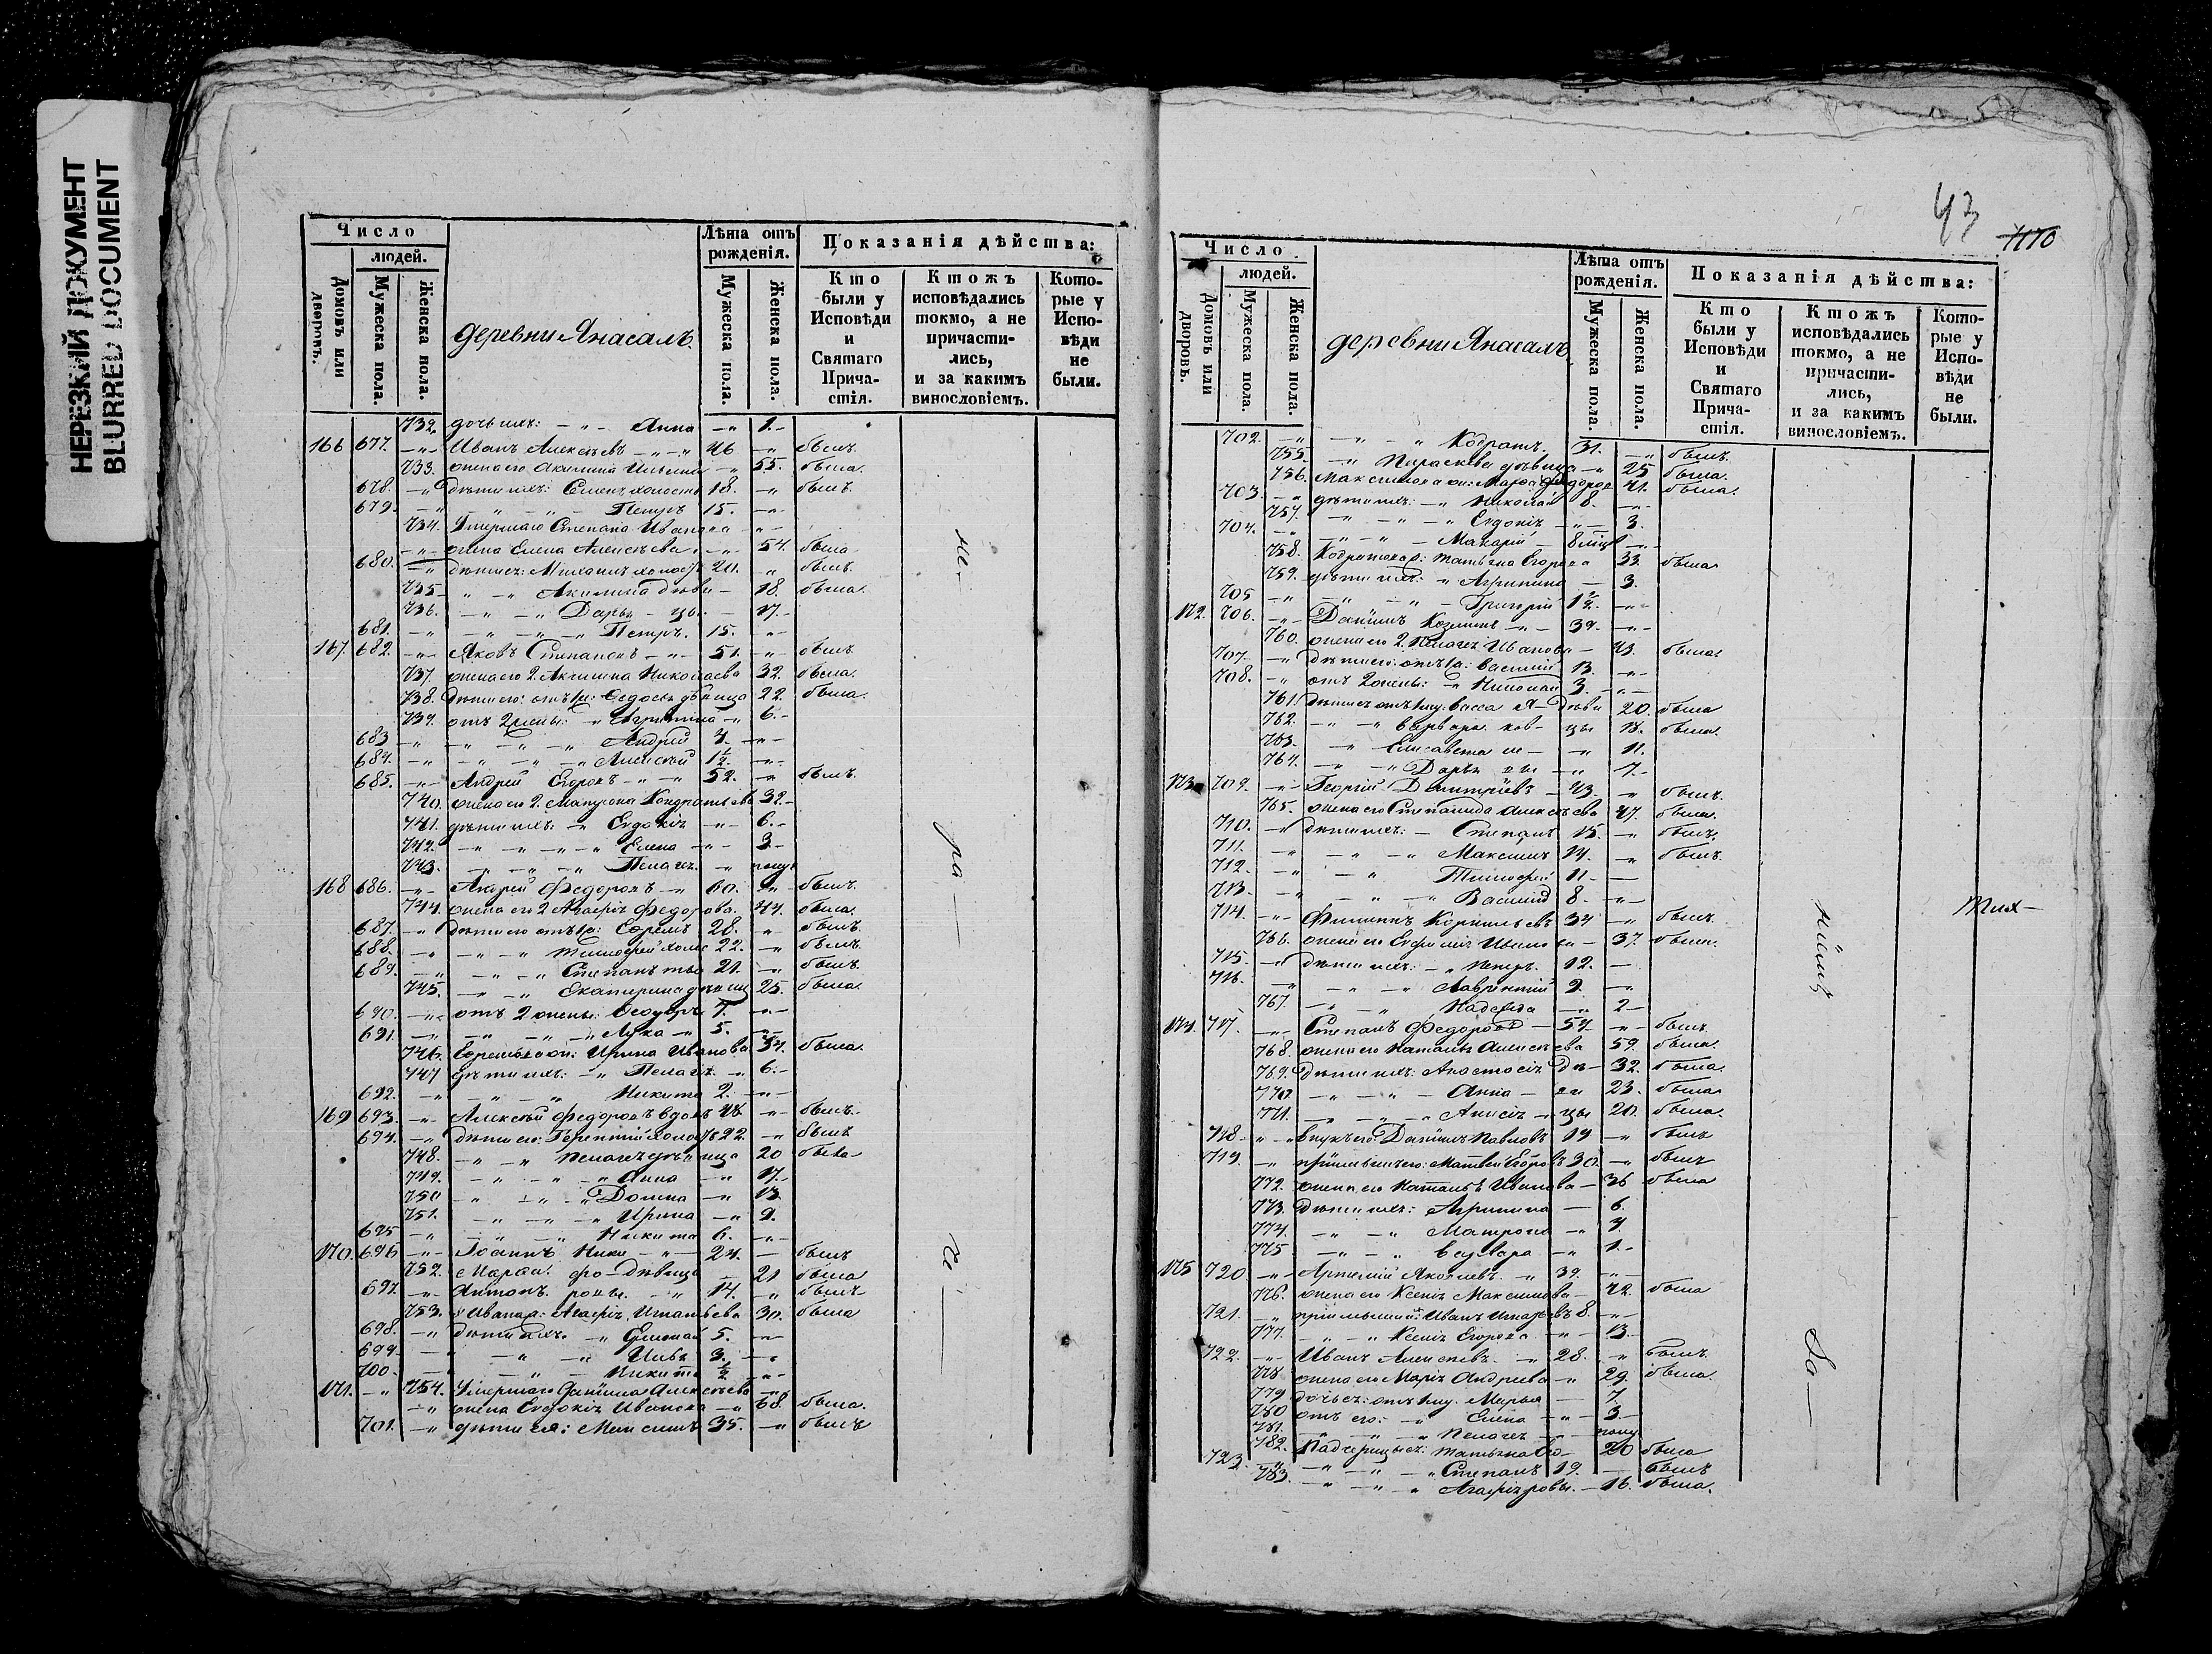 НЕРЕЗКИЙ ДОКУМЕНТ
BLURRED DOCUMENT
Число
людей.
Домовъ или дворовъ.
Мужеска пола.
Женска пола.
деревни Янасалъ.
Лѣта отъ рожденія.
Мужеска пола.
Женска пола.
Показанія дѣйства:
Кто были у Исповѣди и Святаго Причастія.
Ктожъ исповѣдались токмо, а не причастились, и за какимъ винословіемъ.
Которые у Исповѣди не были.
732. дочь ихъ: Анна 1.
166 677. Иванъ Алексѣевъ 46 былъ.
733. жена его Акилина Ильина 55. была.
678. дѣти ихъ: Семенъ холостъ 18. былъ.
679. Петръ 15.
734. Умершаго Степана Иванова
жена Елена Алексѣева 54. была
680. Михаилъ холостъ 20. былъ.
735 Акилина дѣви 18. была.
736. Дарья цы 17.
681. Петръ. 15.
167. 682. Яковъ Степановъ 51. былъ
737. жена его 2. Акилина Николаева 32. была.
738. дѣти его: отъ 1й: Ѳедосья дѣвица 22. была.
739. отъ 2 жены: Агрипина 6.
683 Андрей 4.
684. Алексѣй 1½.
685. Андрей Егоровъ 52. былъ.
740. жена его 2. Матрона Кондратьева 32.
741. дѣти ихъ: Евдокія 6.
742. Елена 3
743. Пелагея полу
168 686. Андрей Федоровъ 60. былъ.
744. жена его 2 Агафія Федорова. 44. была.
687. дѣти его отъ 1й: Ефремъ 28. былъ.
688. Тимофей холос 22. былъ.
689. Степанъ тые 21. былъ.
745. Екатерина дѣвица 25. была.
690. отъ 2 жены: Ѳеодоръ 7.
691. Лука 5.
746. Ефремова ж: Ирина Иванова 34. была.
747 дѣти ихъ: Пелагея 6.
692. Никита 2.
169 693. Алексѣй Федоровъ вдовъ 48 былъ.
694. дѣти его: Терентій холостъ 22. былъ
748. Пелагея дѣвица 20 была
749. Анна 17.
750 Домна 13.
751. Ирина 9.
695 Никита 6.
170. 696 Іоаннъ Ники 24. былъ
752. Марфа. фо дѣвица 21 была
697. Антонъ. ровы. 14. былъ
753. Иванова: Агафія Игнатьева 30. была
698. дѣти ихъ: 5.
699 Илья 3.
700. Никита ½
171. 754. Умершаго Даніила Алексѣева
жена Евдокія Иванова 68. была.
701. дѣти ея: Максимъ 35. былъ
43
1170
Число
людей.
Домовъ или дворовъ.
Мужеска пола.
Женска пола.
деревни Янасалъ
Лѣта отъ рожденія.
Мужеска пола.
Женска пола.
Показанія дѣйства:
Кто были у Исповѣди и Святаго Причастія.
Ктожъ исповѣдались токмо, а не причастились, и за какимъ винословіемъ.
Которые у Исповѣди не были.
702. Кодратъ. 31. былъ.
755. Параскева дѣвица 25 была.
756. Максимова ж: Марфа Федоров 41. была.
703. дѣти ихъ: Николай 8.
757. Евдокія 3.
704. Макарій 8 мѣц
758. Кодратова ж: Татьяна Егорова 33. была
759. дѣти ихъ: Агрипина 3.
705 Григорій 1½.
172. 706. Даніилъ Козминъ 39.
760. жена его 2. Пелагея Иванова 43. была.
707. дѣти его: отъ 1й: Василій 13.
708. отъ 2 жены: Николай 3.
761. дѣти ея отъ 1 му. Васса дѣви 20. была
762. Варвара цы 18. была.
763. Елисавета 11.
764. Дарья 7.
173 709. Георгій Дмитріевъ 43. былъ.
765. жена его Степанида Алексѣева 47. была.
710. дѣти ихъ: Степанъ 15. былъ.
711. Максимъ 14. былъ.
712. Тимофей 11
713. Василій 8.
714. Филиппъ Корнильевъ 34 былъ.
766. жена его Евфимія Ивано 37. была.
715. дѣти ихъ: Петръ. 12.
716. Лаврентій 9.
767. Надежда 2
174. 717. Степанъ Федоровъ 57. былъ.
768. жена его Наталья Алексѣева 59. была.
769. дѣти ихъ: Анастасія дѣ 32. была.
770 Анна ви 23. была
771. Анисія цы 20. была.
718. внукъ его: Даніилъ Павловъ 19 былъ
719. пріимышъ его: Матвей Егоровъ 30. былъ
772. жена его Наталья Иванова 36 была
773. дѣти ихъ: Агрипина 6.
774. Матрона 4.
775 Варвара 1.
175 720. Артемій Яковлевъ. 39.
776. жена его Ксенія Максимова 42. была
721. пріимышъ: Иванъ Игнатьевъ 8.
777. Ксенія Егорова 13.
722. Иванъ Алексѣевъ. 28. былъ.
778 жена его Марія Андреева 29. была.
779 дочь ея: отъ 1 му. Марья 7.
780 отъ его: Елена 3
781. Пелагея полу
782. Падчерицы ея: Татьяна Его 20 была
723. Степанъ 19. былъ
783. Агафія ровы. 16. была.